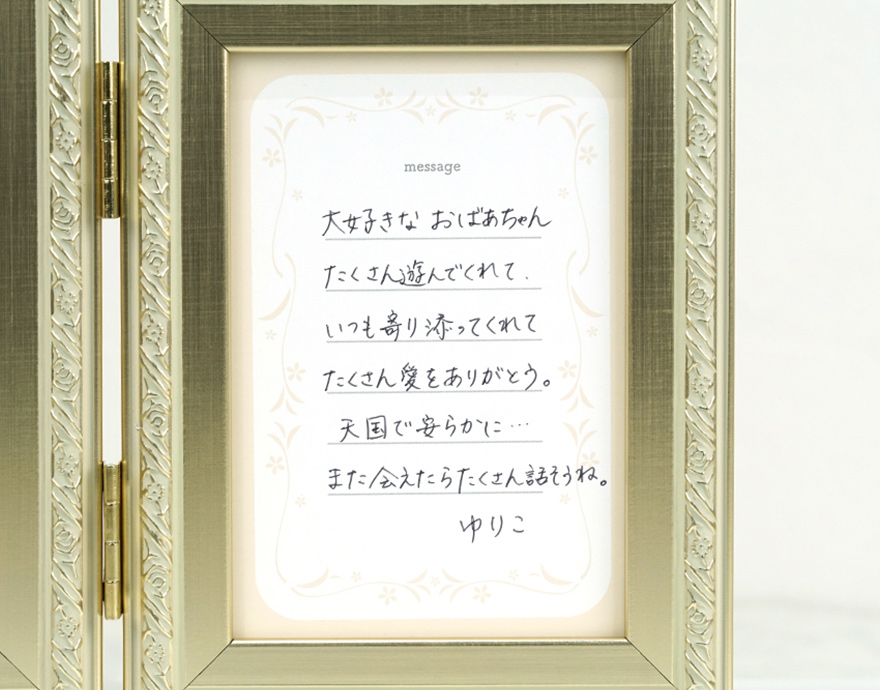 message
大好きな おばあちゃん
たくさん遊んでくれて.
いつも寄り添ってくれて
たくさん愛をありがとう。
天国で安らかに…
また会えたらたくさん話そうね。
ゆりこ